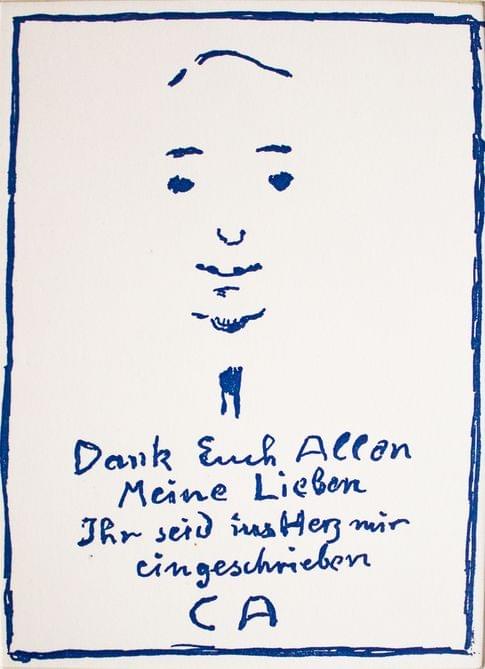 Dank Euch Allen
Meine Lieben
Ihr seid ins Herz mir
eingeschrieben
C A